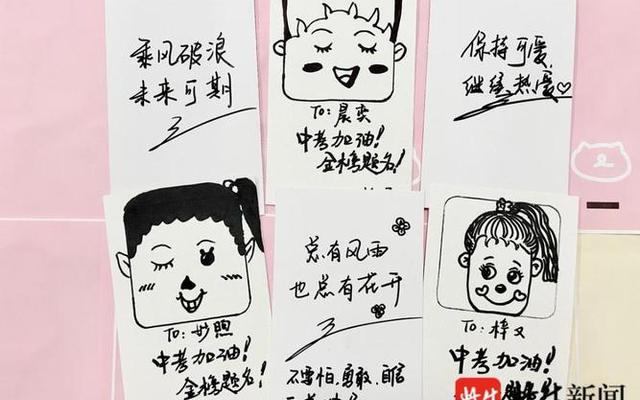 乘风破浪
未来可期
To: 晨奕
中考加油!
金榜题名!
保持可爱
继续热爱
To: 妙照
中考加油!
金榜题名!
总有风雨
也总有花开
不要怕,勇敢,自信
To: 梓又
中考加油!
新闻